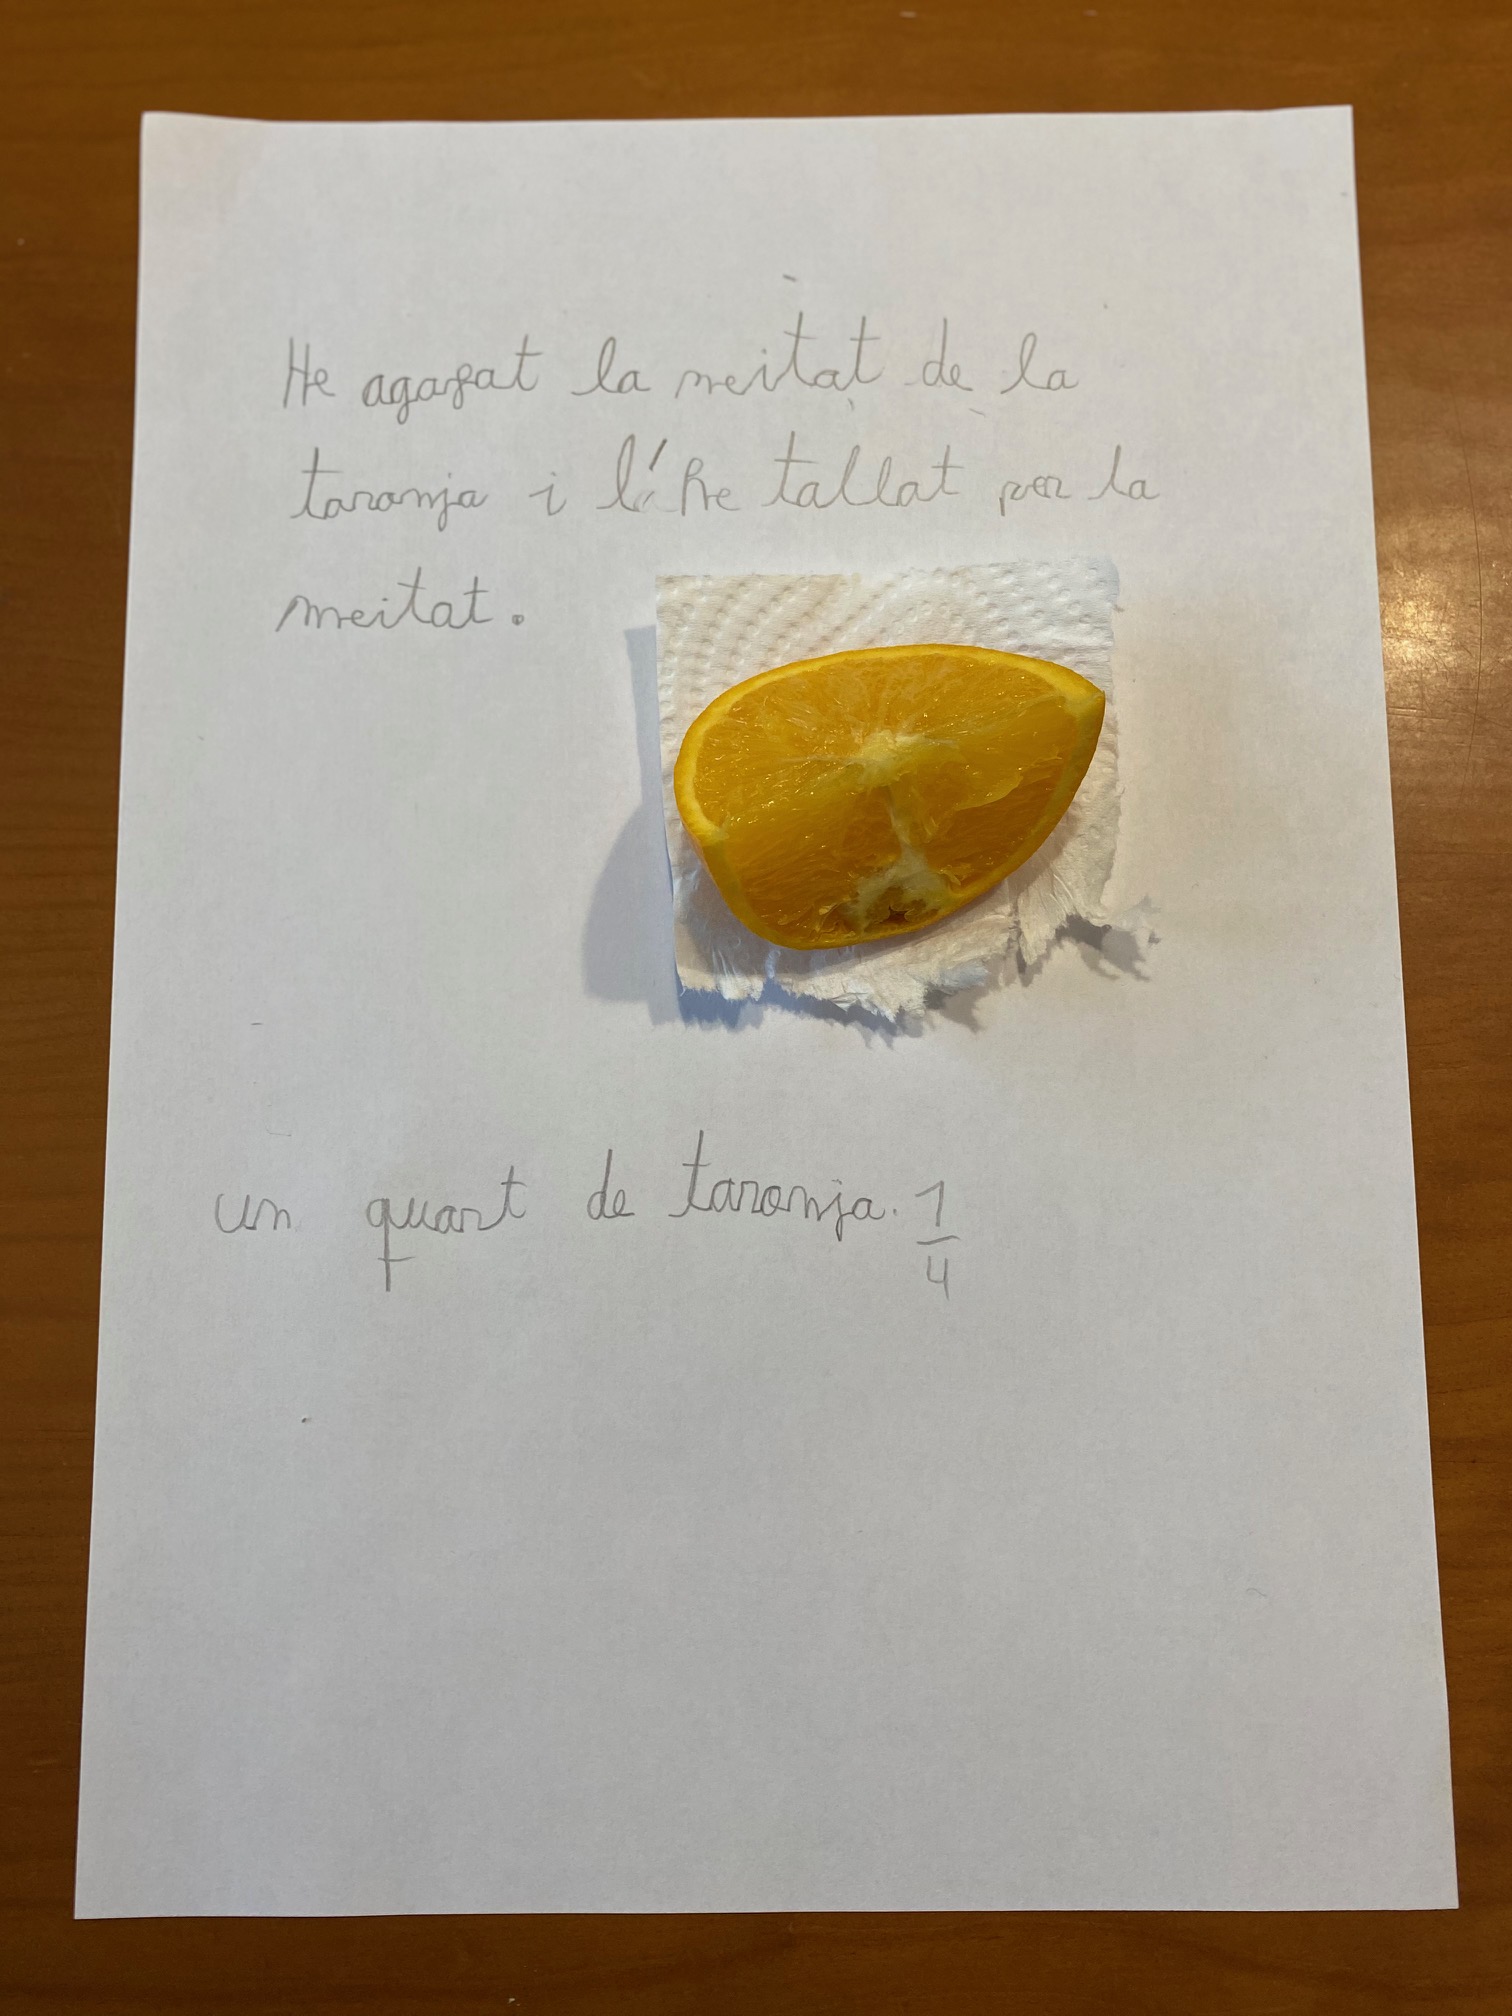 He agafat la meitat de la
taronja i l'he tallat per la
meitat.
un quart de taronja. 1/4